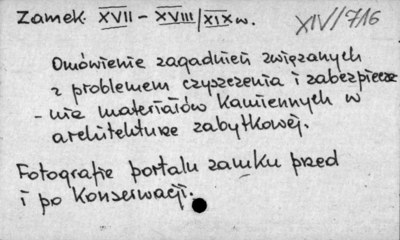 Zamek XVII - XVIII/XIX w.
XIV/716
Omówienie zagadnień związanych
z problemem czyszczenia i zabezpiecze
- nia materiałów kamiennych w
architekturze zabytkowej.
Fotografie portalu zamku przed
i po konserwacji.